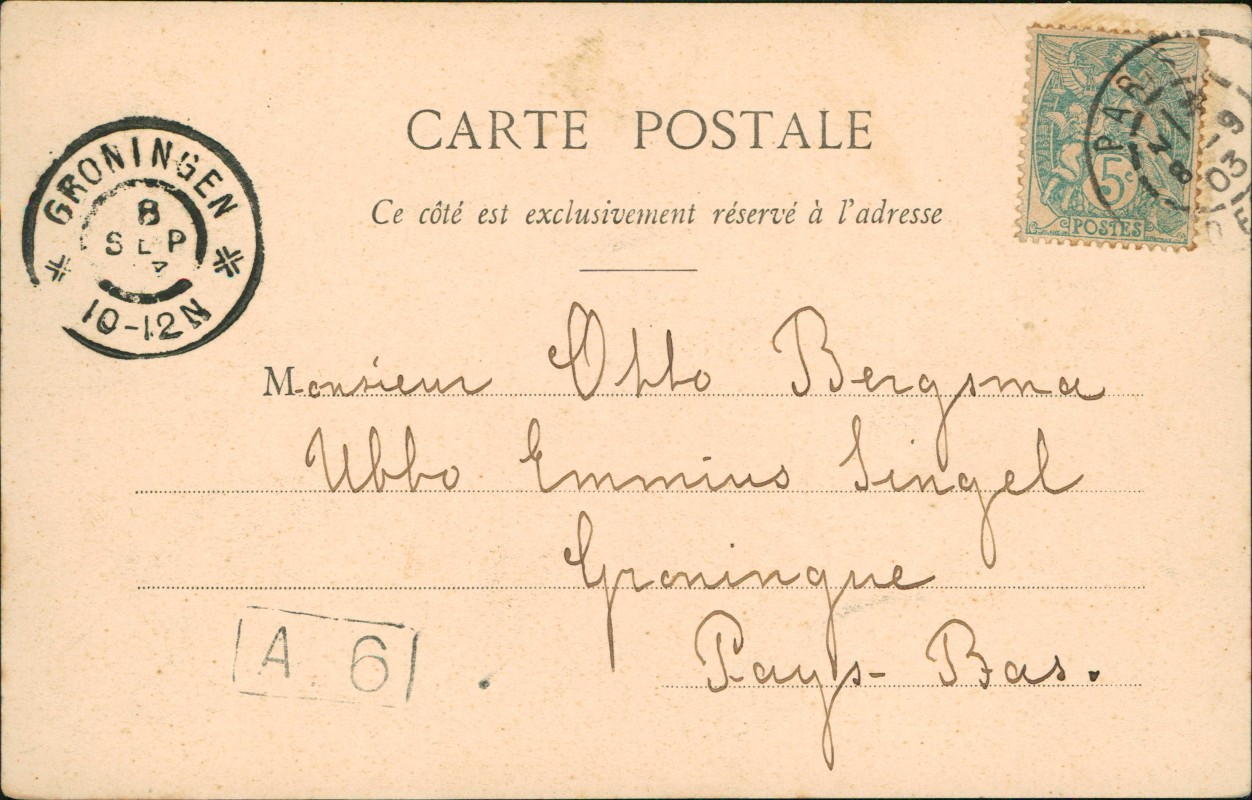 CARTE POSTALE
Ce côté est exclusivement réservé à l'adresse
GRONINGEN
8
SEP
10-12N
PAR
5c
POSTES
Monsieur Otto Bergsma
Ubbo Emmius Singel
Groningue
Pays-Bas.
A 6